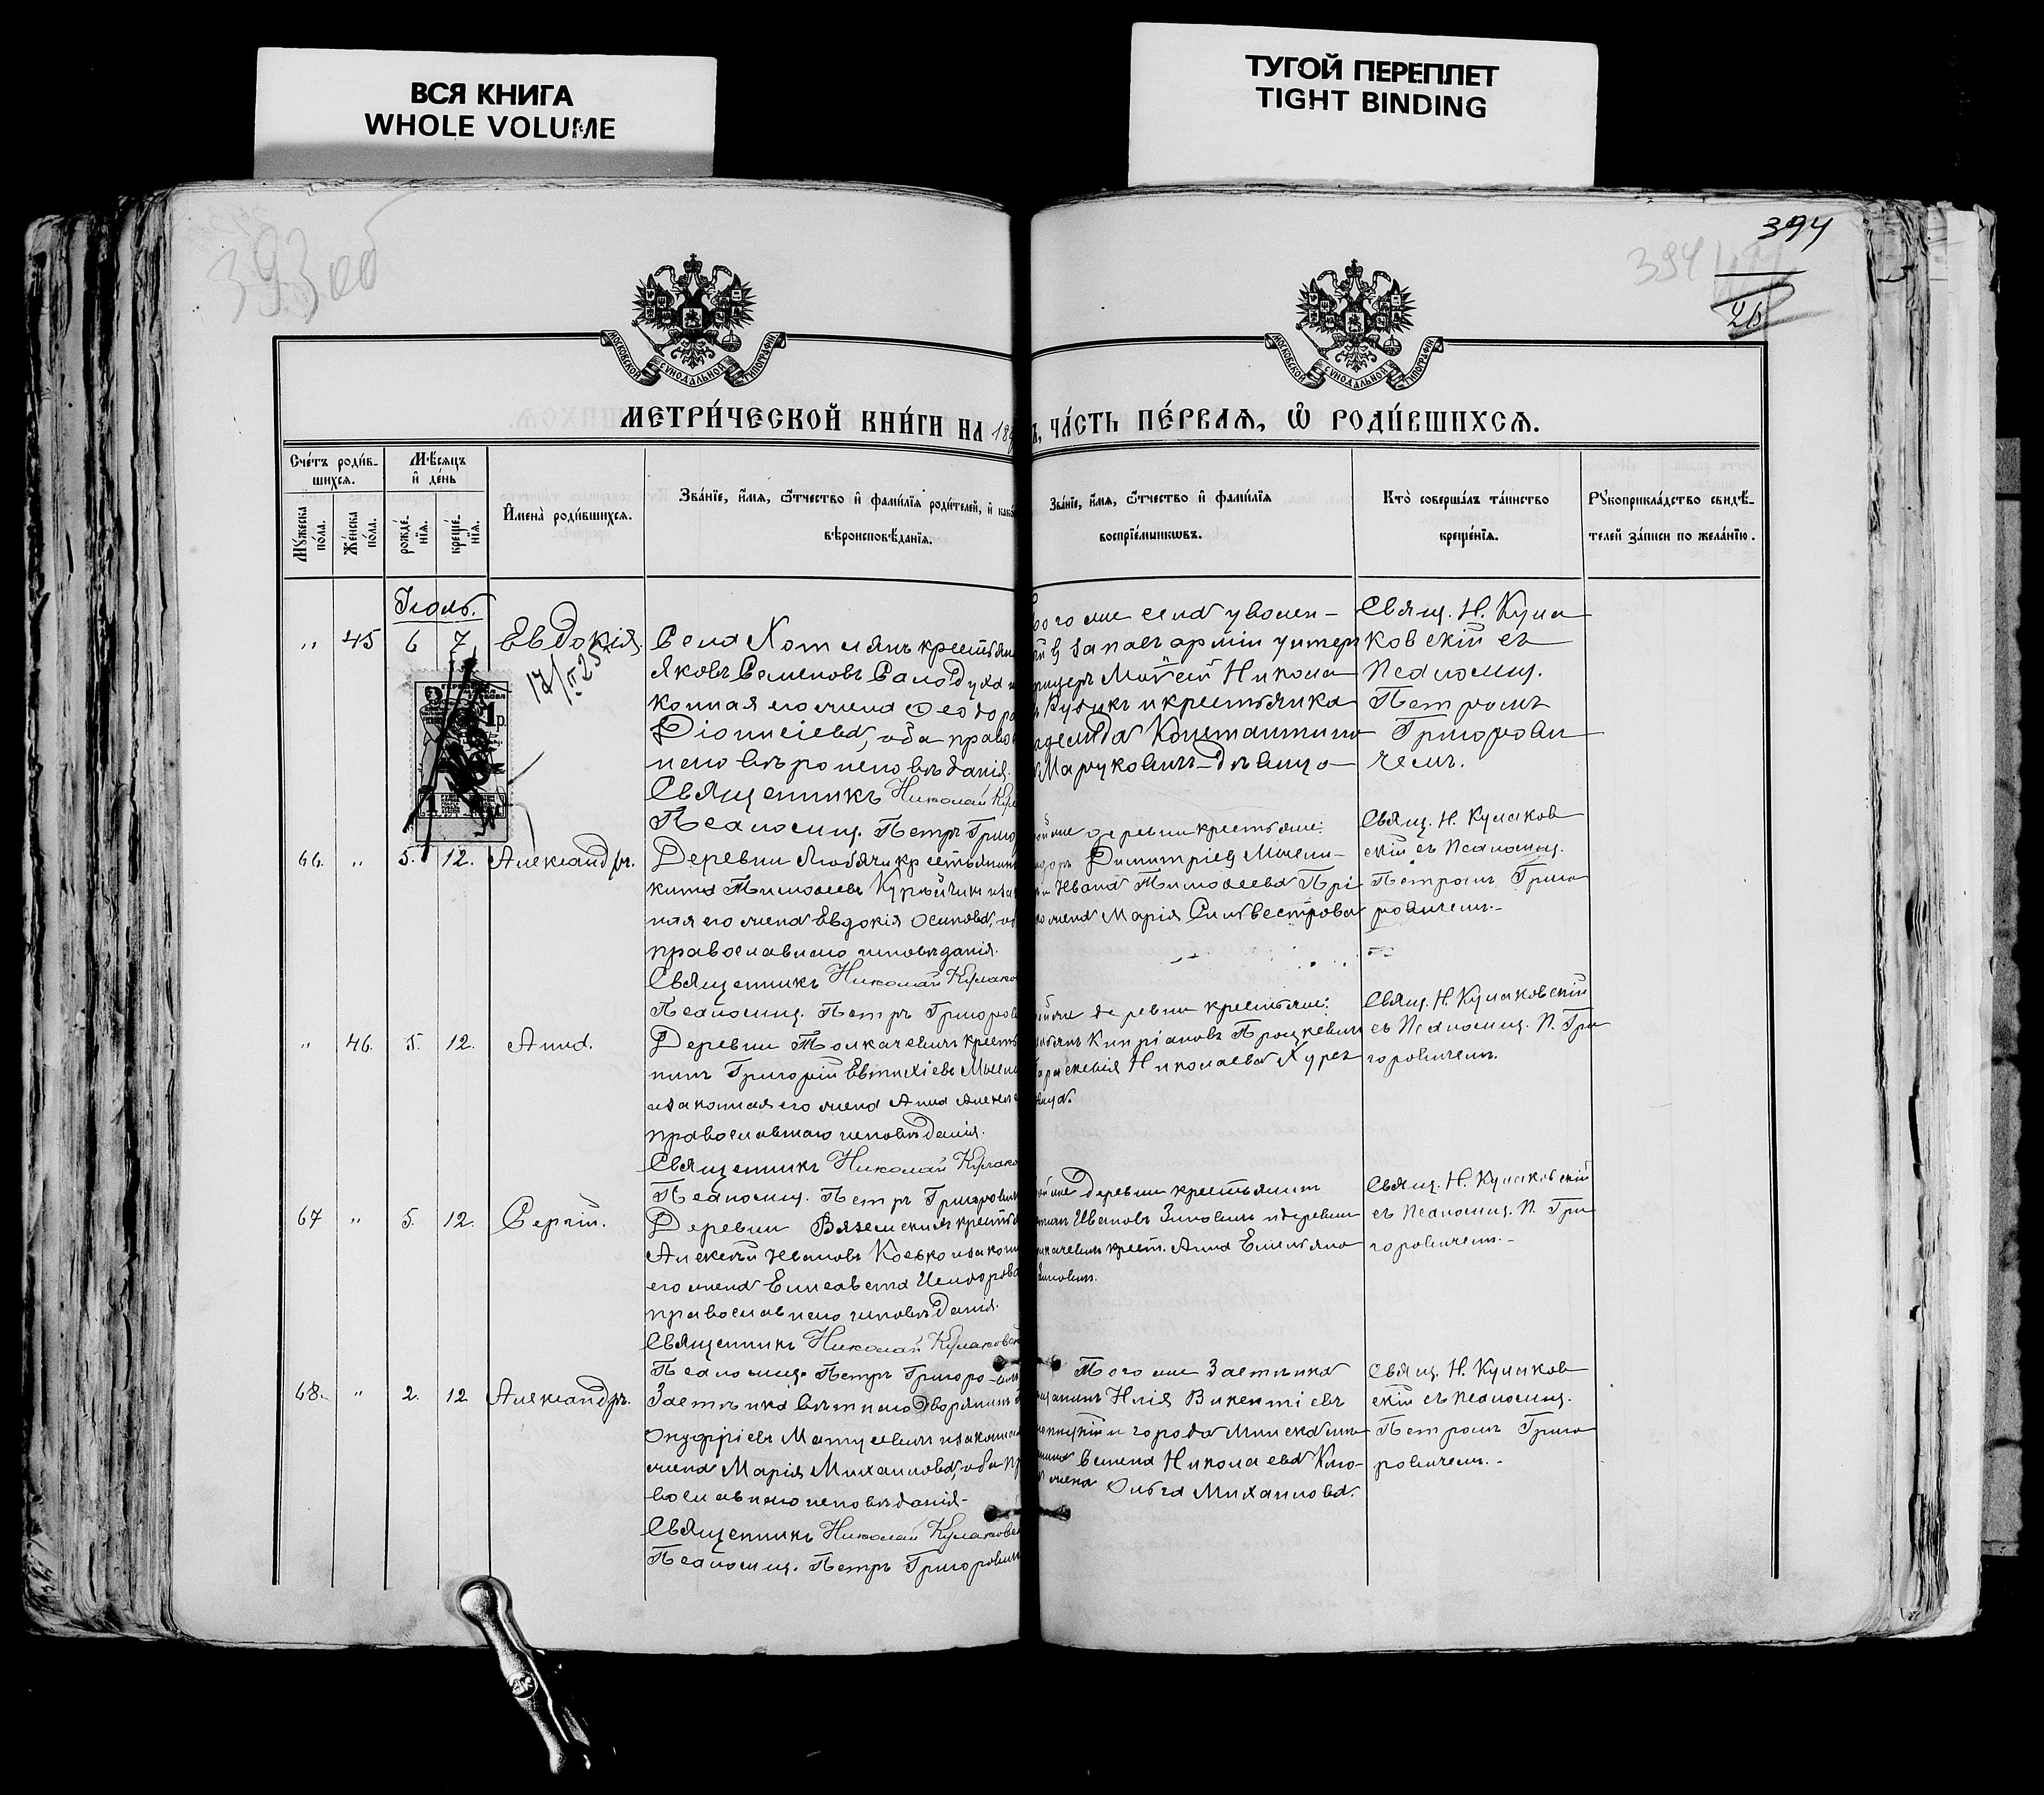 ВСЯ КНИГА
WHOLE VOLUME
ТУГОЙ ПЕРЕПЛЕТ
TIGHT BINDING
393 об
394
394
26
МОСКОВСКОЙ СУНОДАЛЬНОЙ ТИПОГРАФІИ
МОСКОВСКОЙ СУНОДАЛЬНОЙ ТИПОГРАФІИ
МЕТРИ́ЧЕСКОЙ КНИ́ГИ НА 18
Ъ, ЧА́СТЬ ПЕ́РВАЯ, Ѡ҆ РОДИ́ВШИХСЯ.
Сче́тъ роди́в-
шихся.
Мѣ́сяцъ
и҆ де́нь
Му́жеска
по́ла.
Же́нска
по́ла.
рожде́-
нїя.
креще́-
нїя.
И҆мена̀ роди́вшихся.
Зва́нїе, и҆́мя, ѻ҆́тчество и҆ фами́лїя роди́телей, и҆ како
вѣроисповѣ́данїя.
Зва́нїе, и҆́мя, ѻ҆́тчество и҆ фами́лїя
воспрїе́мникѡвъ.
Кто̀ соверша́лъ та́инство
креще́нїя.
Рꙋкоприкла́дство свидѣ́-
телей за́писи по жела́нїю.
Іюль.
„ 45 6 7 Евдокія.
17/II 25
1 р.
Села Хотлянъ крестьян
Яковъ Семеновъ Солодуха и
конная его жена Ѳеодора
Діонисіева, оба право
наго вѣроисповѣданія.
Священникъ Николай Кул
Псаломщ. Петръ Григо
того же села уволен-
въ запасъ арміи унтер
рицеръ Матѳей Никола
Кубикъ и крестьянка
адежда Константино
Марковичъ-дѣвица
Свящ. Н. Кула
ковскій съ
Псаломщ.
Петромъ
Григорови
чемъ.
66. „ 5. 12. Александръ.
Деревни Любячи крестьянинъ
кита Тимоѳеевъ Курьянчикъ и за
ная его жена Евдокія Осипова, об
православнаго исповѣданія.
Священникъ Николай Кулако
Псаломщ. Петръ Григоров
ой же деревни крестьяне:
Димитріевъ
Ивана Тимоѳеева
жена Марія Сильвестрова
Свящ. Н. Кулаков
скій съ Псаломщ.
Петромъ Григо
ровичемъ.-
„ 46. 5. 12. Анна.
Деревни Толкачевичъ кресть
нинъ Григорій Евтихіевъ
и законная его жена Анна Алексе
православнаго исповѣданія.
Священникъ Николай Кулако
Псаломщ. Петръ Григорович
ой же деревни крестьяне:
Кипріановъ Процкевич
араскевія Николаева Хурсъ
вица.
Свящ. Н. Кулаковскій
съ Псаломщ. П. Гри
горовичемъ.
67 „ 5. 12. Сергій.
Деревни Вяземскихъ крестья
Алексѣй Ивановъ Косько и закон
его жена Елисавета Исидорова
православнаго исповѣданія.
Священникъ Николай Кулаковск
Псаломщ. Петръ Григоро-вич
ой же деревни крестьянинъ
Ивановъ Зиновичъ и деревни
лкачевичъ крест. Анна Емельяно
Зиновичъ.
Свящ. Н. Кулаковскій
съ Псаломщ. П. Гри
горовичемъ.-
68. „ 2. 12 Александръ.
Застѣнка Вѣтнаго дворянинъ
Онуфріевъ Матусевичъ и законна
жена Марія Михаилова, оба пр
вославнаго исповѣданія-
Священникъ Николай Кулаковск
Псаломщ. Петръ Григорович
Того же Застѣнка
щанинъ Илія Викентіевъ
и города Минска
Семена Николаева Кло-
жена Ольга Михаилова.
Свящ. Н. Кулаков
скій съ псаломщ.
Петромъ Григо
ровичемъ.-